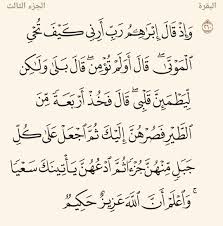 البقرة الجزء الثالث
وَإِذْ قَالَ إِبْرَاهِيمُ رَبِّ أَرِنِي كَيْفَ تُحْيِ
الْمَوْتَى قَالَ أَوَلَمْ تُؤْمِنْ قَالَ بَلَى وَلَكِنْ
لِيَطْمَئِنَّ قَلْبِي قَالَ فَخُذْ أَرْبَعَةً مِنَ
الطَّيْرِ فَصُرْهُنَّ إِلَيْكَ ثُمَّ اجْعَلْ عَلَى كُلِّ
جَبَلٍ مِنْهُنَّ جُزْءًا ثُمَّ ادْعُهُنَّ يَأْتِينَكَ سَعْيًا
وَاعْلَمْ أَنَّ اللَّهَ عَزِيزٌ حَكِيمٌ